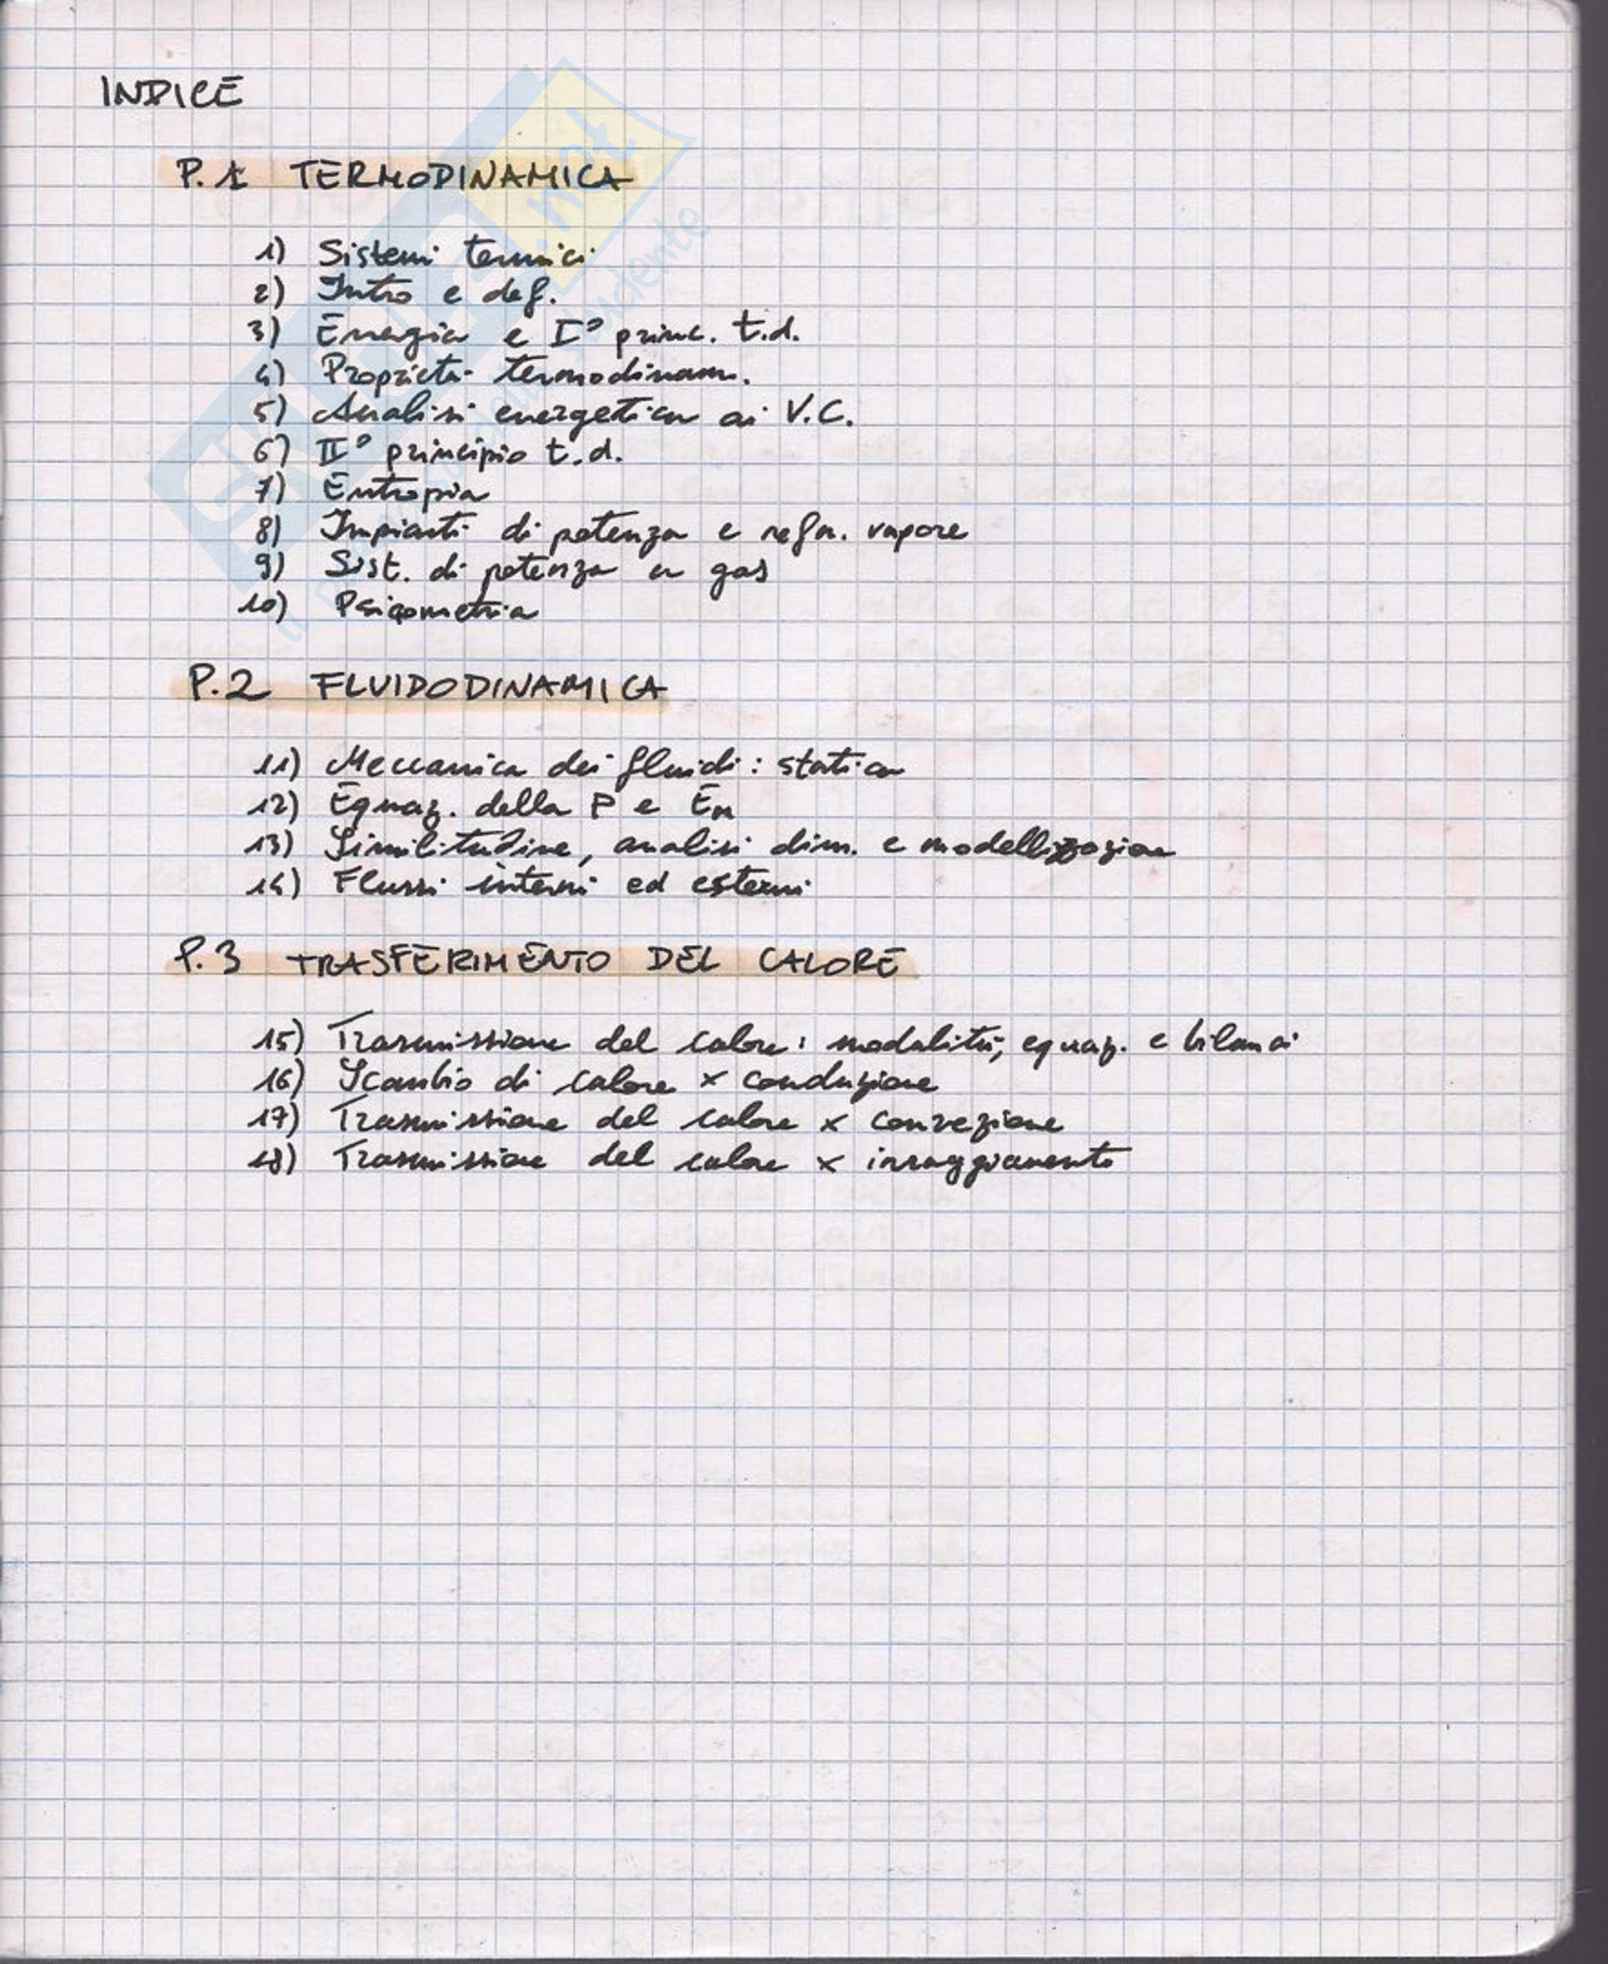 INDICE
P.1 TERMODINAMICA
1) Sistemi termici
2) Intro e def.
3) Energia e I° princ. t.d.
4) Proprietà termodinam.
5) Analisi energetica ai V.C.
6) II° principio t.d.
7) Entropia
8) Impianti di potenza e refr. vapore
9) Sist. di potenza a gas
10) Psicometria
P.2 FLUIDODINAMICA
11) Meccanica dei fluidi: statica
12) Equaz. della P e En
13) Similitudine, analisi dim. e modellizzazione
14) Flussi interni ed esterni
P.3 TRASFERIMENTO DEL CALORE
15) Trasmissione del calore: modalità, equaz. e bilanci
16) Scambio di calore x conduzione
17) Trasmissione del calore x convezione
18) Trasmissione del calore x irraggiamento